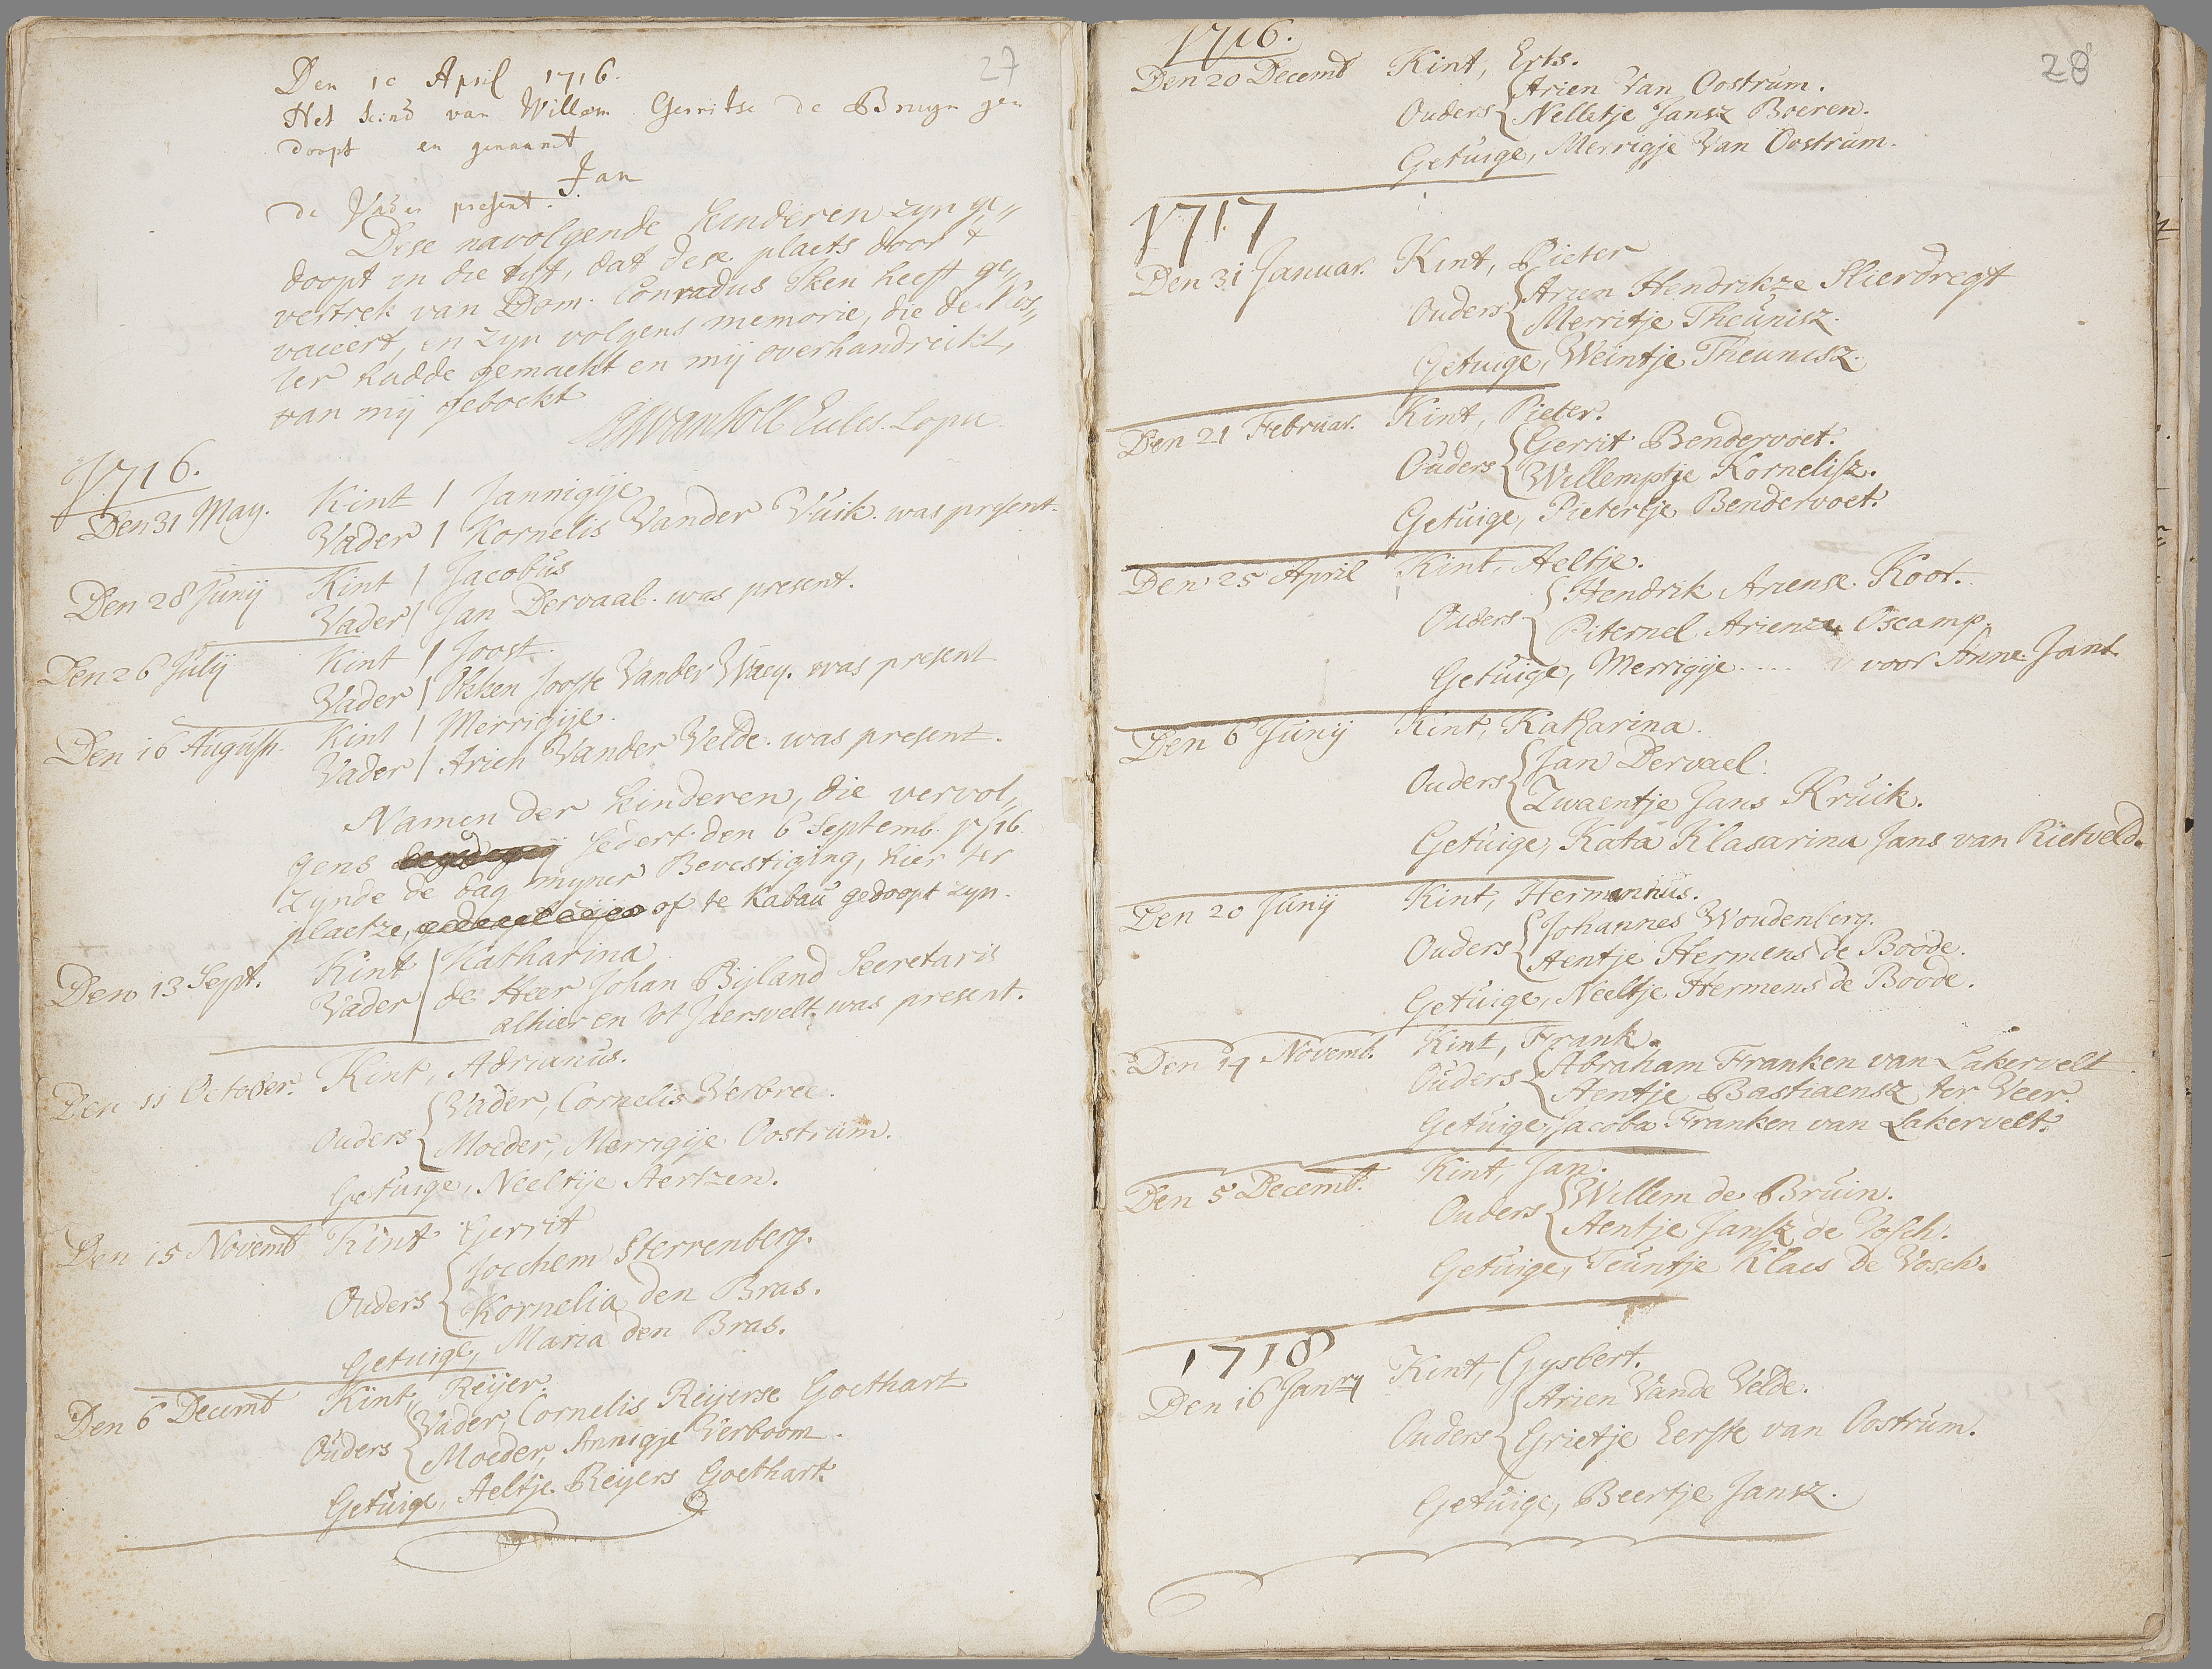 27
Den 10 April 1716.
Het kind van Willem Gerritse de Bruyn ge
doopt en genaamt
Jan
de Vader present.
Dese navolgende kinderen zyn ge„
doopt in die tyt, dat dese plaets door t
vertrek van Dom. Conradus Iken heeft ge„
vaceert, en zyn volgens memorie, die de Kos„
ter hadde gemaekt en mij overhandreikt,
van mij geboekt
1716.
Den 31 May. Kint / Jannigije
Vader / Kornelis Vander Vuik. was present.
Den 28 Junij Kint / Jacobus
Vader / Jan Dervaal. was present.
Den 26 Julij Kint / Joost.
Vader / Okken Jooste Vander Waey. was present
Den 16 August. Kint / Merrigije.
Vader / Arien Vander Velde. was present.
Namen der kinderen, die vervol„
gens sedert den 6 Septemb. 1716.
zynde de dag myner Bevestiging, hier ter
plaetze, of te Kabau gedoopt zyn.
Den 13 Sept. Kint / Katharina
Vader / de Heer Johan Byland Secretaris
alhier en tot Jaersvelt. was present.
Den 11 October. Kint, Adrianus.
Ouders { Vader, Cornelis Verbree.
Moeder, Merrigije Oostrum.
Getuige, Neeltije Aertzen.
Den 15 Novembr Kint Gerrit
Ouders { Jocchem Sterrenberg.
Kornelia den Bras.
Getuige, Maria den Bras.
Den 6 Decembr Kint, Reijer.
Ouders { Vader, Cornelis Reijerse Goethart
Moeder, Annigje Verboom.
Getuige, Aeltje Reijers Goethart.
28
1716.
Den 20 Decembr Kint, Erts.
Ouders { Arien Van Oostrum.
Nelletje Jansz Boeren.
Getuige, Merrigje Van Oostrum.
1717
Den 31 Januar. Kint, Pieter
Ouders { Arien Hendrikze Slierdregt
Merritje Theunisz.
Getuige, Weintje Theunisz.
Den 21 Februar. Kint, Pieter.
Ouders { Gerrit Bendervoet.
Willemptje Kornelisz.
Getuige, Pietertje Bendervoet.
Den 25 April Kint, Aeltje.
Ouders { Hendrik Ariense Koot.
Piternel Arienze Oscamp.
Getuige, Merrigije .... voor Anna Jans.
Den 6 Junij Kint, Katharina.
Ouders { Jan Dervael.
Zwaentje Jans Kruik.
Getuige, Kata Klasarina Jans van Rietveld.
Den 20 Junij Kint, Hermannus.
Ouders { Johannes Woudenberg.
Aentje Hermens de Boode.
Getuige, Neeltje Hermens de Boode.
Den 14 Novemb. Kint, Frank.
Ouders { Abraham Franken van Lakervelt
Aentje Bastiaensz ter Veer.
Getuige, Jacoba Franken van Lakervelt.
Den 5 Decembr. Kint, Jan.
Ouders { Willem de Bruin.
Aentje Jansz de Vosch.
Getuige, Teuntje Klaes De Vosch.
1718
Den 16 Janry Kint, Gysbert.
Ouders { Arien Vande Velde.
Grietje Eerste van Oostrum.
Getuige, Beertje Jansz.